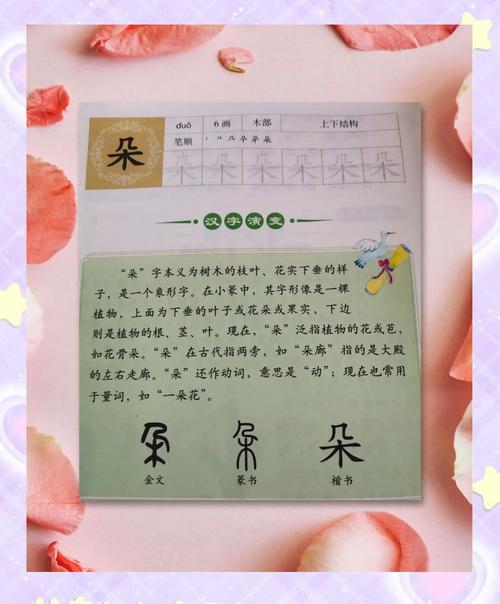 朵
duǒ 6画 木部 上下结构
笔顺
朵 朵 朵 朵 朵 朵
汉字演变
“朵”字本义为树木的枝叶、花实下垂的样
子，是一个象形字。在小篆中，其字形像是一棵
植物，上面为下垂的叶子或花朵或果实，下边
则是植物的根、茎、叶。现在，“朵”泛指植物的花或苞，
如花骨朵。“朵”在古代指两旁，如“朵廊”指的是大殿
的左右走廊。“朵”还作动词，意思是“动”；现在也常用
于量词，如“一朵花”。
朵 朵 朵
金文 篆书 楷书